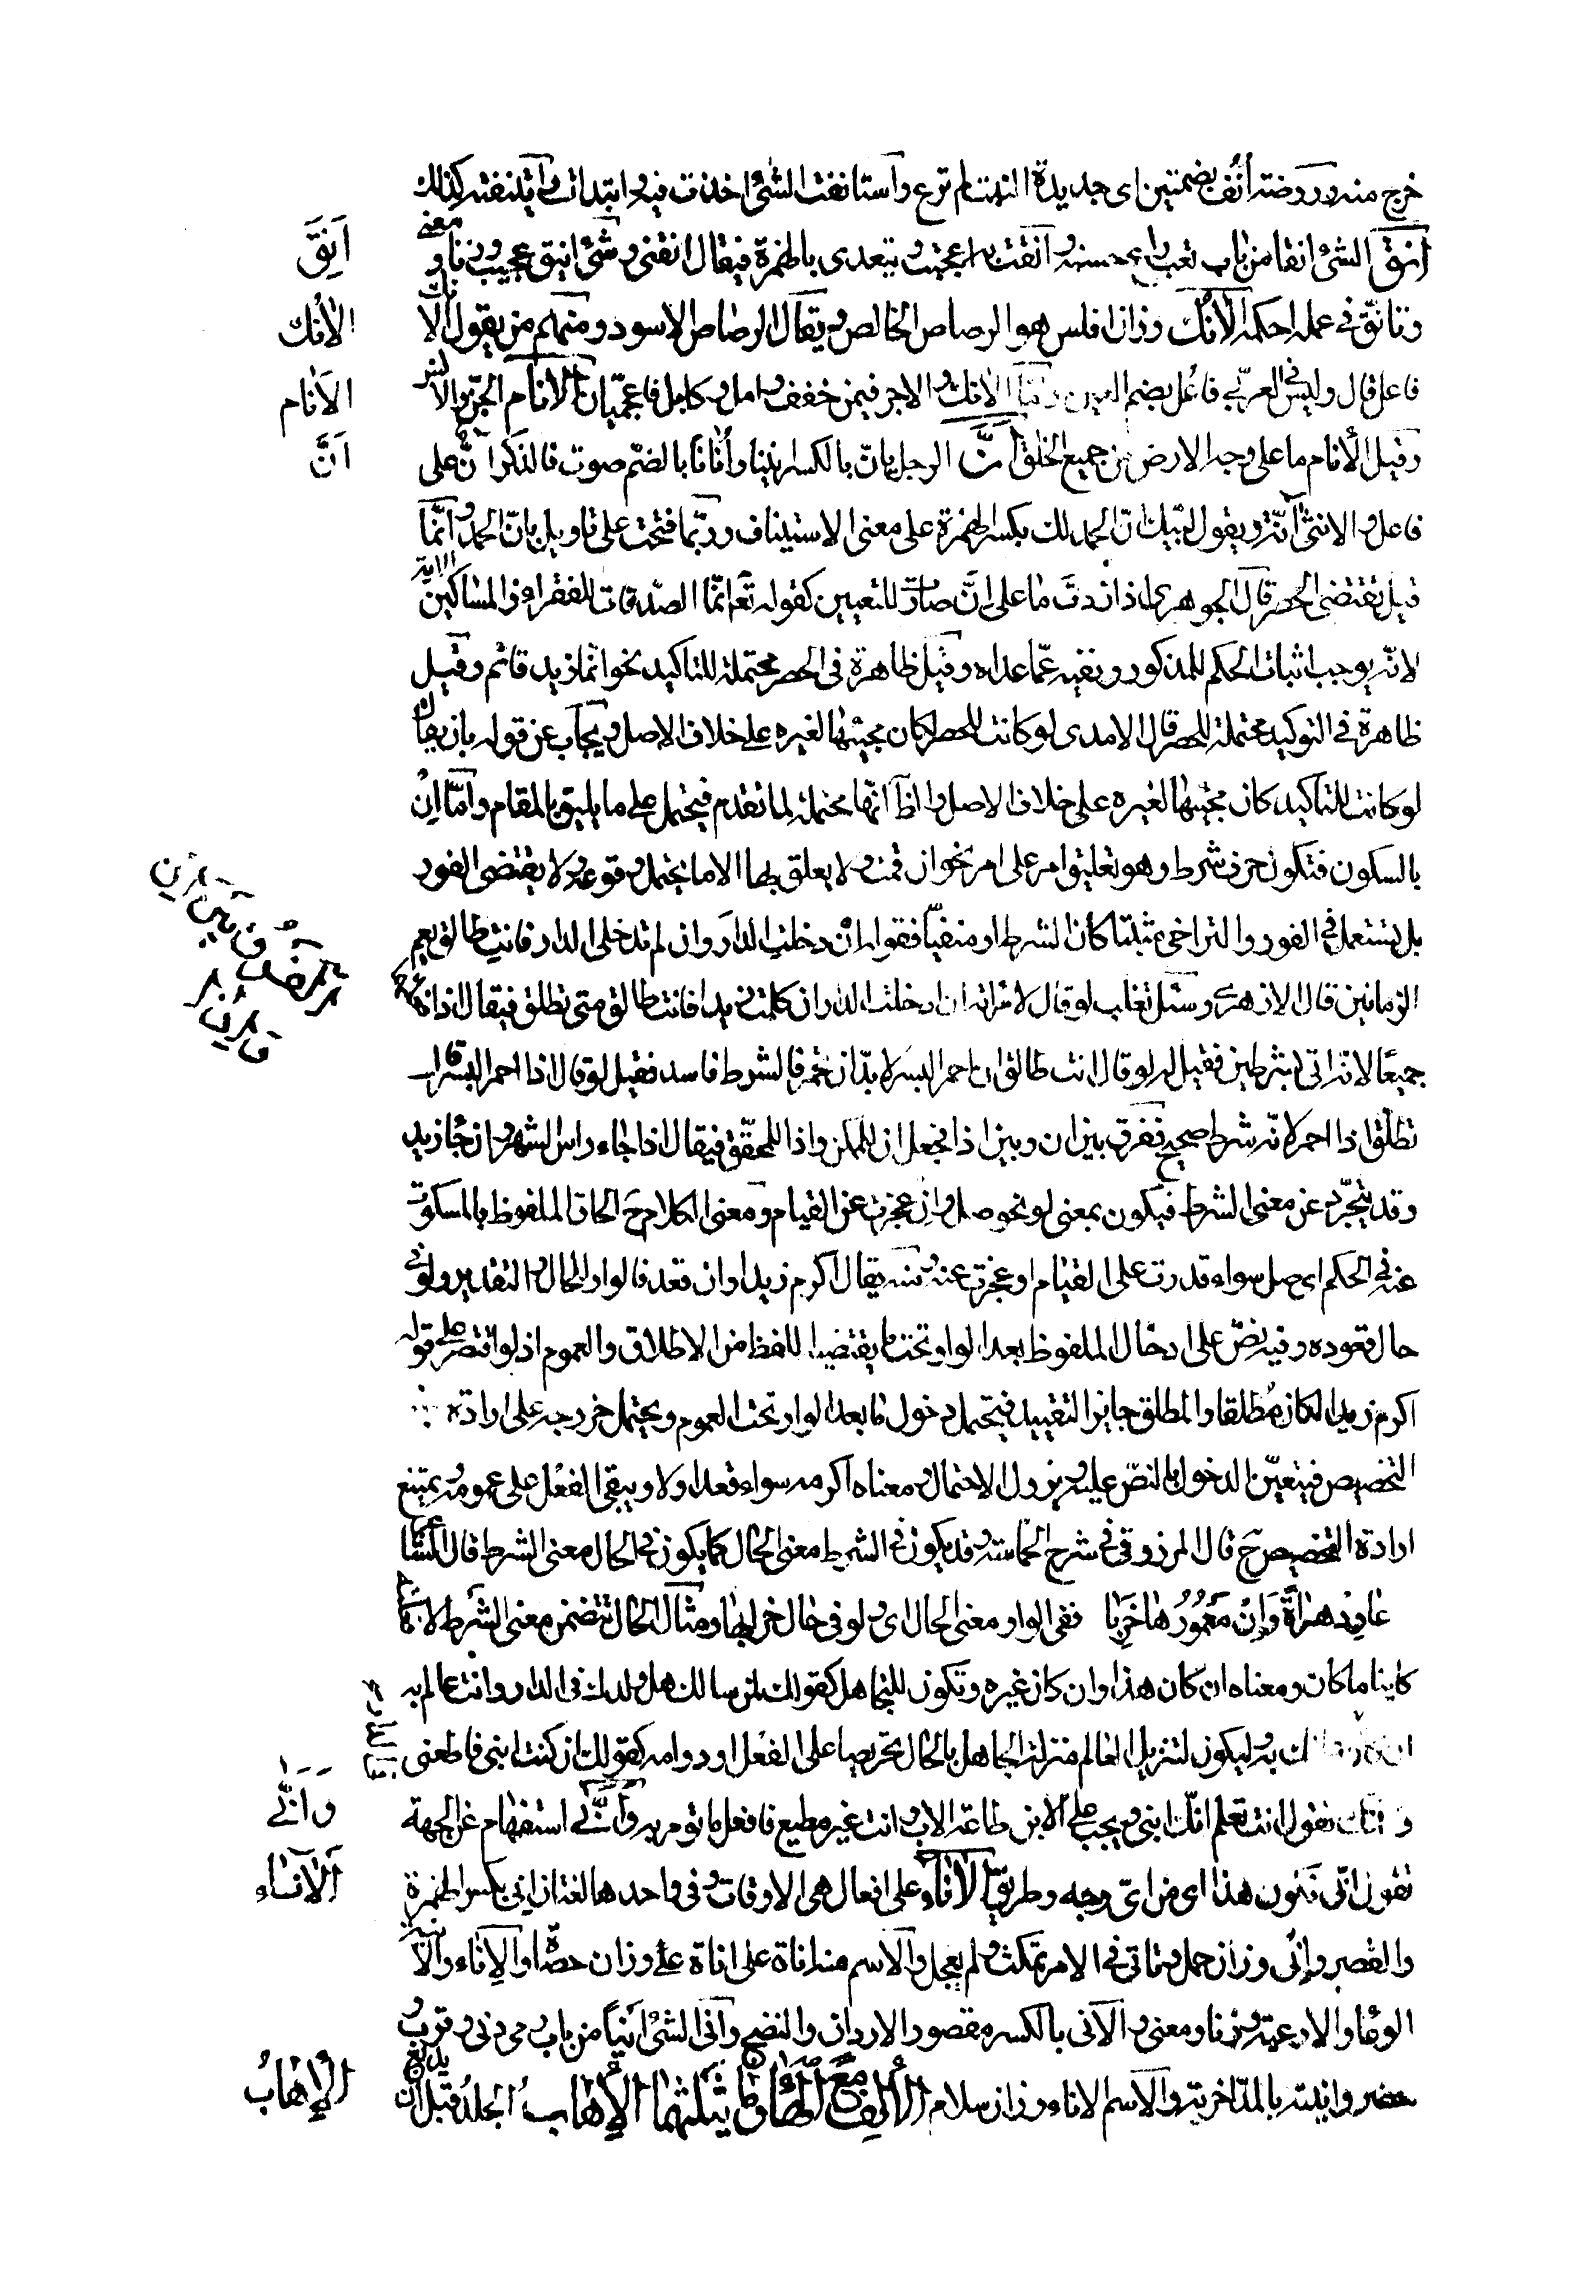 خرج منه وروضة أُنُف بضمتين اى جديدة النبت لم ترع واستانفت الشئ اخذت فيه وابتداته وايتنفته كذلك
أَنِقَ الشئ انقا من باب تعب راع حسنه وانقت به اعجبت ويتعدى بالهمزة فيقال انقنى وشئ انيق عجيب وزنا ومعنى
وتانّق فى عمله احكمه الأنك وزان افلس هو الرصاص الخالص ويقال الرصاص الاسود ومنهم من يقول الآنك
فاعل قال وليس فى العربى فاعُل بضم العين وامّا الانك والاجر فيمن خفف وامل وكابل فاعجميّات الانام الجن والانس
وقيل الأنام ما على وجه الارض من جميع الخلق أنَّ الرجل يانّ بالكسر انينا وأُنانا بالضم صوت فالذكر آنّ على
فاعل والانثى آنّة ويقول لبّيك انّ الحمد لك بكسر الهمزة على معنى الاستيناف وربّما فتحت على تاويل بانّ الحمد وانّما
قيل يقتضى الحصر قال الجوهرى اذا زدتَ ما على إنَّ صارت للتعيين كقوله تعٰ انّما الصّدقات للفقراء والمساكين الاية
لانّه يوجب اثبات الحكم للمذكور ونفيه عمّا عداه وقيل ظاهرة فى الحصر محتملة للتاكيد نحو انّما زيد قائم وقيل
ظاهرة فى التوكيد محتملة للحصر قال الامدى لو كانت للحصر لكان مجيئها لغيره على خلاف الاصل ويجاب عن قوله بان يقال
لو كانت للتاكيد كان مجيئها لغيره على خلاف الاصل والظاٰ انّها محتملة لما تقدم فيحمل على ما يليق بالمقام وامّا اِنْ
بالسكون فتكون حرف شرط وهو تعليق امر على امر نحو ان قمت قمت ولا يعلق بها الا ما يحتمل وقوعه ولا يقتضى الفور
بل يستعمل فى الفور والتراخى مثبتا كان الشرط او منفيّا فقوله ان دخلت الدار وان لم تدخلى الدار فانت طالق يعم
الزمانين قال الازهرى وسئل ثعلب لو قال لامراته ان دخلت الدار ان كلمت زيدا فانت طالق متى تطلق فيقال اذا فعلتهما
جميعًا لانّه اتى بشرطين فقيل له لو قال انت طالق ان احمر البسر لا بدّ ان يحمر فالشرط فاسد فقيل لو قال اذا احمر البسر قال
تطلق اذا احمر لانه شرط صحيح ففرق بين ان وبين اذا فجعل ان للممكن واذا للمحقّق فيقال اذا جاء راس الشهر وان جاٰ زيد
وقد يتجرّد عن معنى الشرط فيكون بمعنى لو نحو صل وان عجزت عن القيام ومعنى الكلام حَ الحاق الملفوظ بالمسكوت
عنه فى الحكم اى صل سواء قدرت على القيام او عجزت عنه ومنه يقال اكرم زيدا وان قعد فالواو للحال والتقدير ولو فى
حال قعوده وفيه نصّ على ادخال الملفوظ بعد الواو تحت ما يقتضيه اللفظ من الاطلاق والعموم اذ لو اقتصر على قوله
اكرم زيدا لكان مُطلقا والمطلق جايز التقييد فيحتمل دخول ما بعد الواو تحت العموم ويحتمل خروجه على ارادة
التخصيص فيتعيّن الدخول بالنصّ عليه ويزول الاحتمال ومعناه اكرمه سواء قعد او لا ويبقى الفعل على عمومه ويمتنع
ارادة التخصيص حَ قال المرزوقى فى شرح الحماسة وقد يكون فى الشرط معنى الحال كما يكون فى الحال معنى الشرط قال الشاعر
عاوِد هراةَ وَاِنْ مَعْمُورُها خَرِبا ففى الواو معنى الحال اى ولو فى حال خرابها ومثال الحال تتضمن معنى الشرط لافعلنه
كاينا ما كان ومعناه ان كان هذا وان كان غيره وتكون للتجاهل كقولك لمن سالك هل ولدك فى الدار وانت عالم به
ان كان فى الدار اعلمتك به وليكون لتنزيل العالم منزلة الجاهل بالحال تحريصا على الفعل او دوامه كقولك ان كنت ابنى فاطعنى
وكانك تقول انت تعلم انّك ابنى ويجب على الابن طاعة الاب وانت غير مطيع فافعل ما تومر به وأَنّٰى استفهام عن الجهة
تقول انّى تكون هذا اى من اىّ وجه وطريق الآناء على افعال هى الاوقات وفى واحدها لغتان اِنى بكسر الهمزة
والقصر وإنْى وزان حمل وتانى فى الامر تمكث ولم يعجل والاسم منه اناة على اناة على وزان حصاة والإناء والآنية
الوعاٰ والاوعية وزنا ومعنى والانى بالكسر مقصور الادراك والنضج وآنى الشئ انيًا من باب رمى دنى وقرب
حضر وانيته بالمدّ اخرته والاسم الاناء وزان سلام الألف مع الهاء وما يثلثهما الأهابُ الجلد قبل ان يدبغ
اَنِقَ
الأنك
الاَنام
اَنَّ
وَاَنّٰى
اَلآنَاء
الإهَابُ